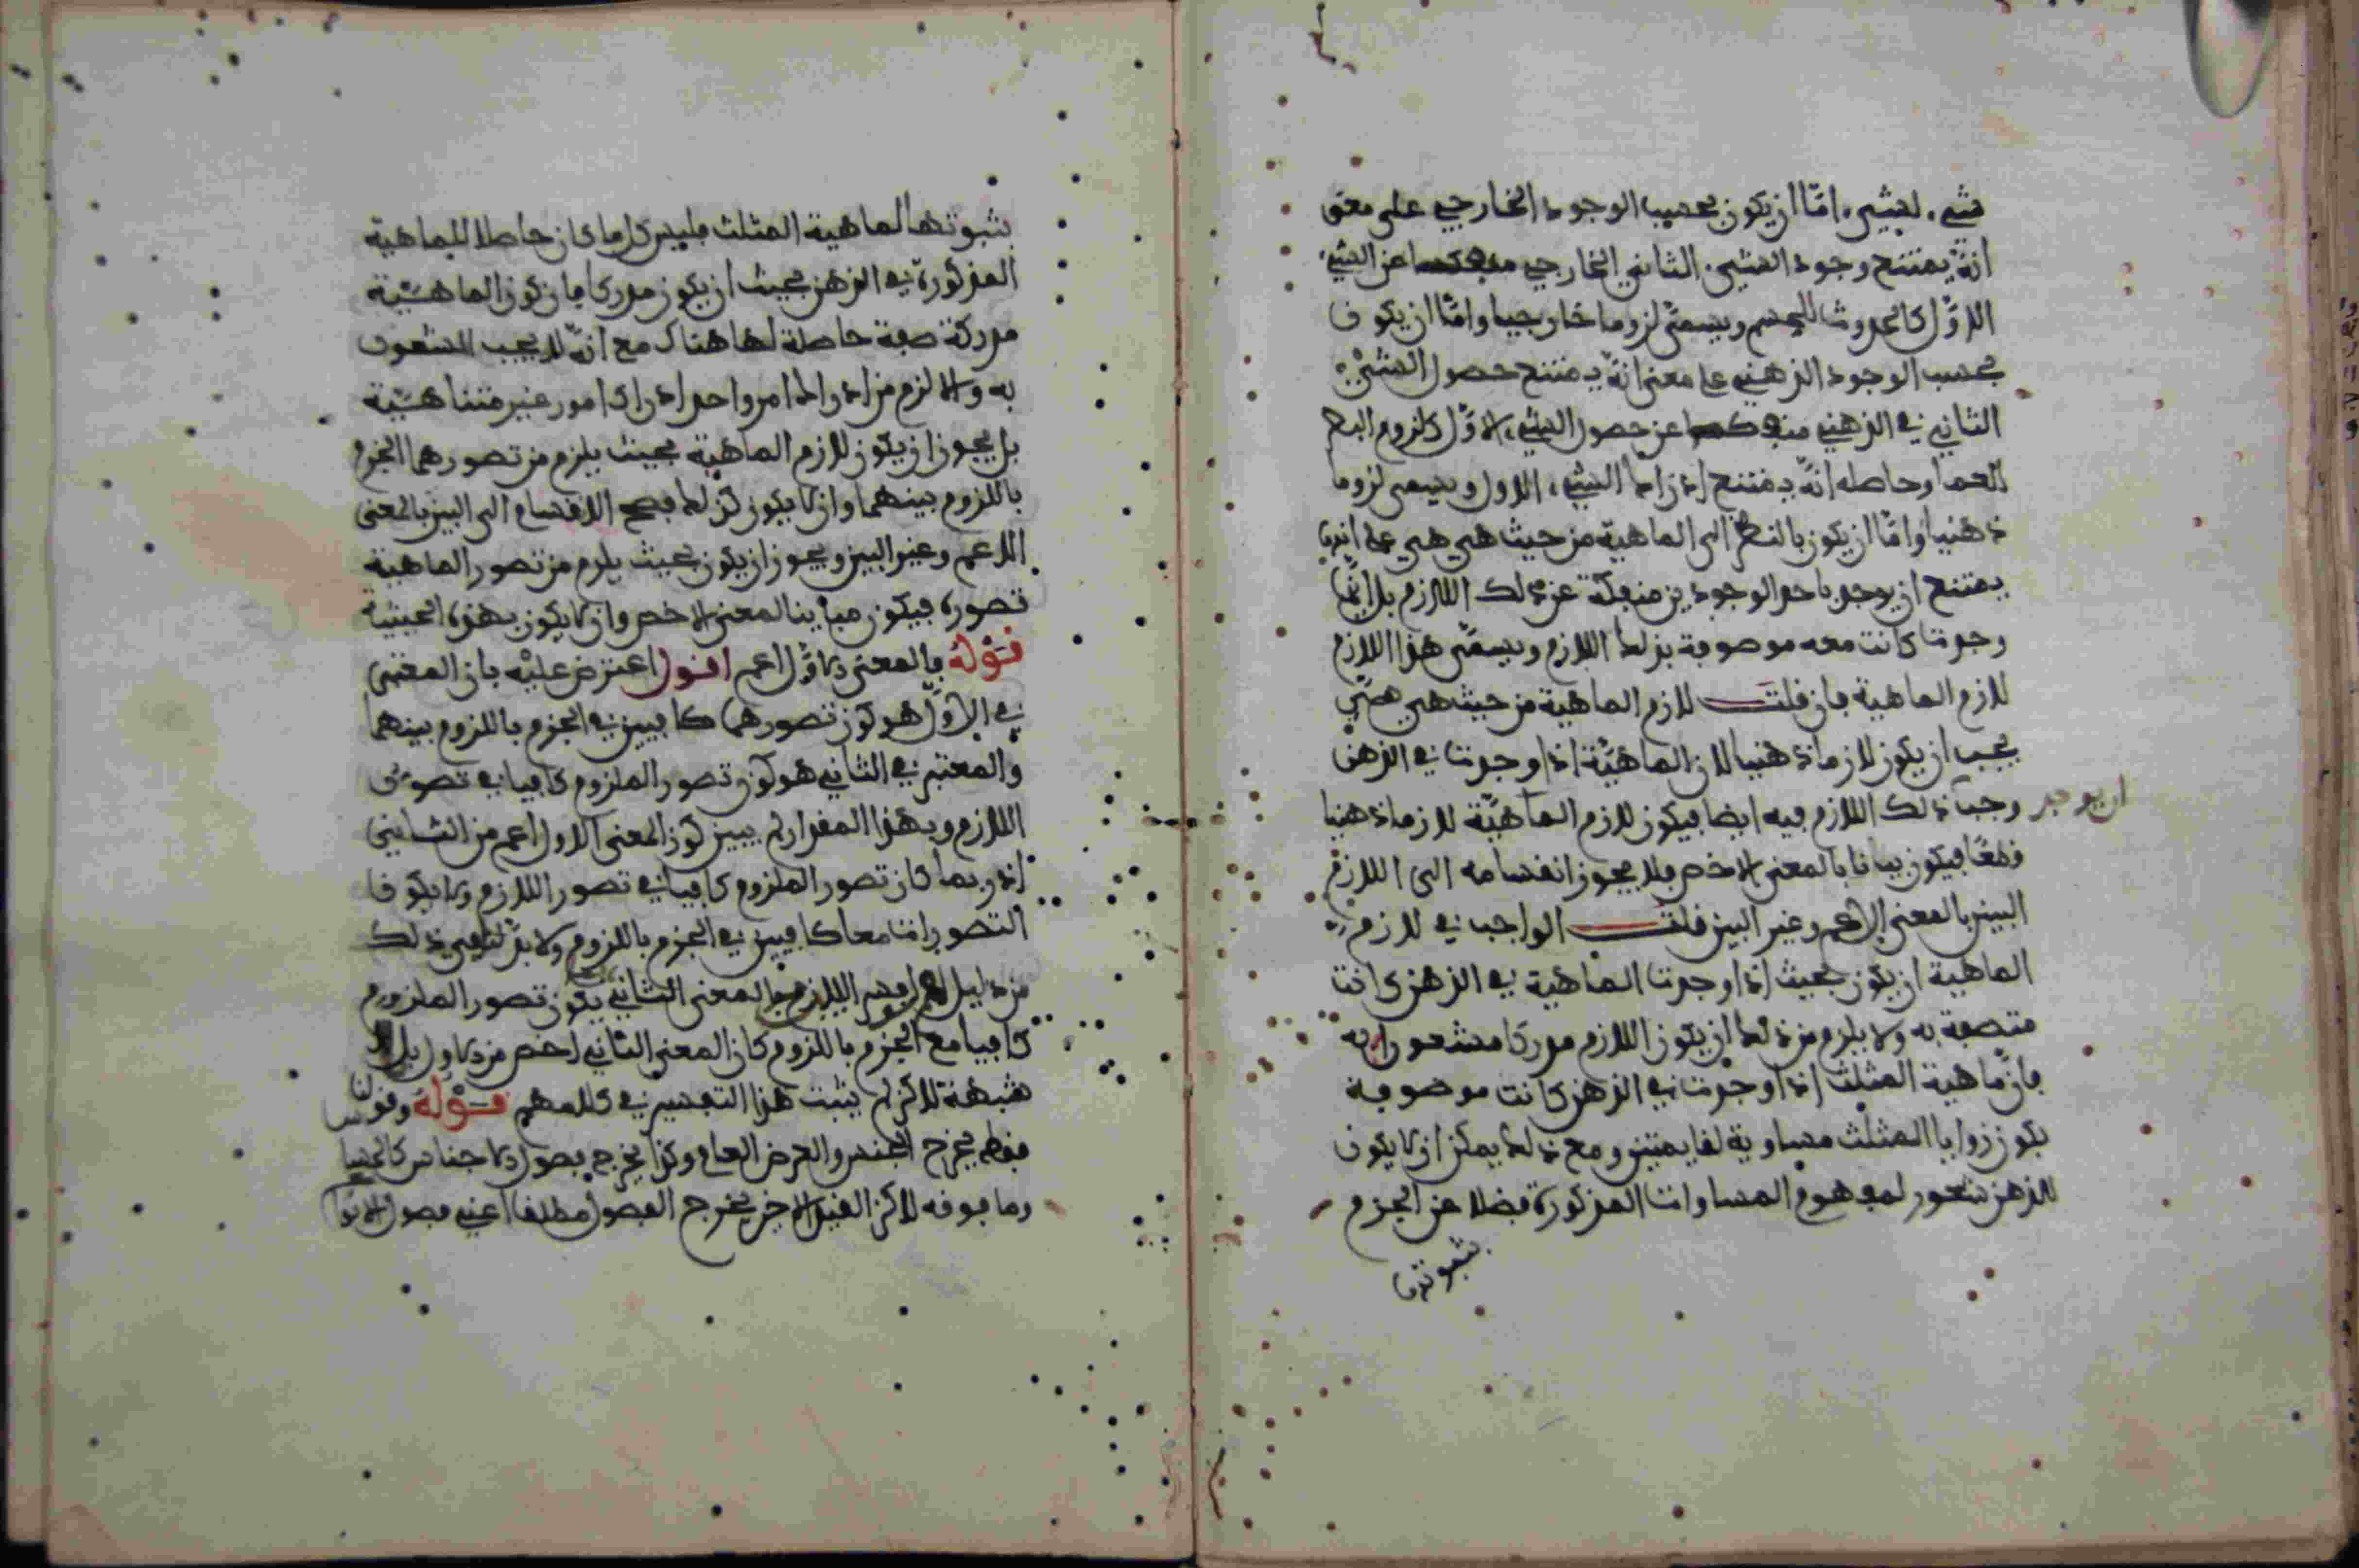 شيء لشيء اما ان يكون بحسب الوجود الخارجي على معنى
انه يمتنع وجود الشيء الثاني الخارجي منفكا عن الشيء
الاول كالحدوث للجسم ويسمى لزوما خارجيا واما ان يكون
بحسب الوجود الذهني على معنى انه يمتنع حصول الشيء
الثاني في الذهني منفكا عن حصول الشيء الاول كلزوم البصر
للعما وحاصله انه يمتنع ادراك الشيء الاول ويسمى لزوما
ذهنيا واما ان يكون بالنظر الى الماهية من حيث هي هي على انها
يمتنع ان يوجد باحد الوجودين منفكة عن ذلك اللازم بل اينما
وجدت كانت معه موصوفة بذلك اللازم ويسمى هذا اللازم
لازم الماهية فان قلت لازم الماهية من حيث هي هي
يجب ان يكون لازما ذهنيا لان الماهية اذا وجدت في الذهن
وجب ذلك اللازم فيه ايضا فيكون لازم الماهية لازما ذهنيا
ان يوجد
قطعا فيكون بيانا بالمعنى الاخص فلا يجوز انقسامه الى اللازم
البين بالمعنى الاعم وغير البين قلت الواجب في لازم
الماهية ان يكون بحيث اذا وجدت الماهية في الذهن كانت
متصفة به ولا يلزم من ذلك ان يكون اللازم مدركا مشعورا به
فان ماهية المثلث اذا وجدت في الذهن كانت موصوفة
بكون زوايا المثلث مساوية لقايمتين ومع ذلك يمكن ان لا يكون
للذهن شعور لمفهوم المساوات المذكورة فضلا عن الجزم
بثبوتها
بثبوتها لماهية المثلث فليس كل ما كان حاصلا للماهية
المذكورة في الذهن يجب ان يكون مدركا فان كون الماهية
مدركة صفة حاصلة لها هناك مع انه لا يجب الشعور
به والا لزم من ادراك امر واحد ادراك امور غير متناهية
بل يجوز ان يكون لازم الماهية بحيث يلزم من تصورهما الجزم
باللزوم بينهما وان لا يكون كذلك فصح الانقسام الى البين بالمعنى
الاعم وغير البين ويجوز ان يكون بحيث يلزم من تصور الماهية
تصوره فيكون مباينا لمعنى الاخص وان لا يكون بهذه الحيثية
قوله فالمعنى الاول اعم اقول اعترض عليه بان المعتبر
في الاول هو كون تصورهما كافيين في الجزم باللزوم بينهما
والمعتبر في الثاني هو كون تصور الملزوم كافيا في تصور
اللازم وبهذا المقدار لم يبين كون المعنى الاول اعم من الثاني
اذ ربما كان تصور الملزوم كافيا في تصور اللازم ولا يكون
التصورات معا كافيين في الجزم باللزوم ولا بد لنفي ذلك
من دليل المعنى الثاني يكون تصور الملزوم
كافيا مع الجزم باللزوم كان المعنى الثاني اخص من الاول بلا
شبهة لكن لم يثبت هذا التفسير في كلامهم قوله وقولنا
فقط يخرج الجنس والعرض العام وكذا يخرج فصول الاجناس كالحساس
وما فوقه لكن القيد الاخير يخرج الفصول مطلقا اعني فصول الانواع